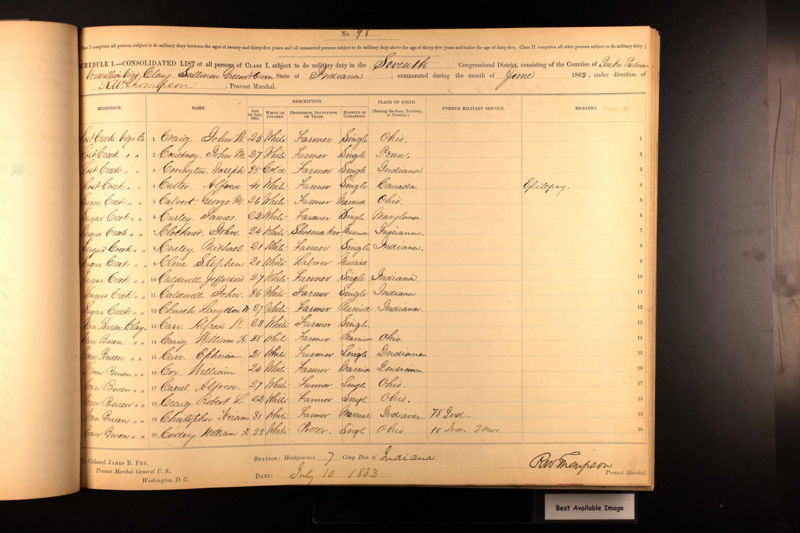 No. 98
Class I comprises all persons subject to do military duty between the ages of twenty and thirty-five years, and all unmarried persons subject to do military duty above the age of thirty-five years and under the age of forty-five. Class II comprises all other persons subject to do military duty.]
SCHEDULE I.—CONSOLIDATED LIST of all persons of CLASS I, subject to do military duty in the Seventh Congressional District, consisting of the Counties of Parke Putnam
Vermillion Vigo, Clay, Sullivan Greene & Owen, State of Indiana, enumerated during the month of June 1863, under direction of
R.W. Thompson, Provost Marshal.
RESIDENCE. NAME. DESCRIPTION. PLACE OF BIRTH. FORMER MILITARY SERVICE. REMARKS.
AGE 1st July, 1863. WHITE OR COLORED. PROFESSION, OCCUPATION, OR TRADE. MARRIED OR UNMARRIED. (Naming the State, Territory, or Country.)
Lost Creek Vigo Co 1 Craig John W. 26 White Farmer Single Ohio. 1
Lost Creek " " 2 Courtney John M. 27 White Farmer Single Penn. 2
Lost Creek " " 3 Covington Joseph 35 Cold Farmer Single Indiana 3
Lost Creek " " 4 Cutler Alfred 41 White Farmer Single Canada Epilepsy. 4
Sugar Creek " " 5 Calvert George M. 26 White Farmer Married Ohio. 5
Sugar Creek " " 6 Curley James 22 White Farmer Single Maryland 6
Sugar Creek " " 7 John. 24 White Shoemaker Married Indiana. 7
Sugar Creek " " 8 Curley Michael 21 White Farmer Single Indiana. 8
Sugar Creek " " 9 Cline Stephen 20 White Laborer Married 9
Sugar Creek " " 10 Caldwell Jefferson 27 White Farmer Single Indiana 10
Sugar Creek " " 11 Caldwell John 36 White Farmer Single Indiana 11
Sugar Creek " " 12 Church W. 27 White Farmer Married Indiana. 12
Van Buren Clay. 13 Carr Alfred 23 White Farmer Single. 13
Van Buren " " 14 Craig William 28 White Farmer Married Ohio. 14
Van Buren " " 15 Ephriam 21 White Farmer Single Indiana 15
Van Buren " " 16 Cox William 24 White Farmer Married Indiana 16
Van Buren " " 17 Alfred 27 White Farmer Single Ohio. 17
Van Buren " " 18 Craig Robert L. 22 White Farmer Single Ohio. 18
Van Buren " " 19 Christopher Hiram 31 White Farmer Married Indiana 78 Ind. 19
Van Buren " " 20 William 22 White Potter. Single Ohio 20
Colonel JAMES B. FRY,
Provost Marshal General U. S.,
Washington, D. C.
STATION: Headquarters 7 Cong. Dist of Indiana
DATE: July 10 1863
RW Thompson
Provost Marshal.
Best Available Image